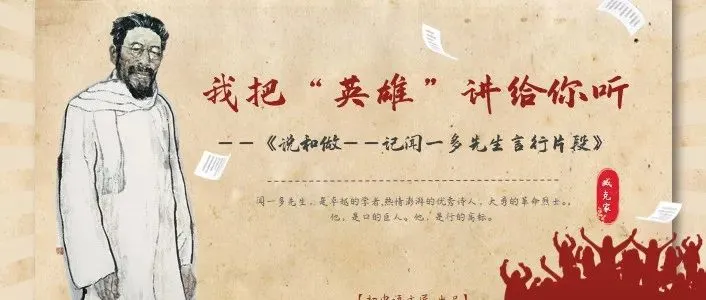 我把“英雄”讲给你听
——《说和做——记闻一多先生言行片段》
闻一多先生，是卓越的学者，热情澎湃的优秀诗人，大勇的革命烈士。
他，是口的巨人。他，是行的高标。
臧克家